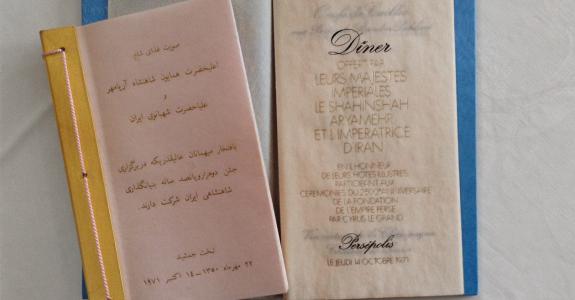 صورت غذای شام
اعلیحضرت همایون شاهنشاه آریامهر
و
علیاحضرت شهبانوی ایران
بافتخار میهمانان عالیقدریکه در برگزاری
جشن دوهزار و پانصد ساله بنیانگذاری
شاهنشاهی ایران شرکت دارند
تخت جمشید
۲۲ مهرماه ۱۳۵۰ – ۱۴ اکتبر ۱۹۷۱
Dîner
OFFERT PAR
LEURS MAJESTES
IMPERIALES
LE SHAHINSHAH
ARYAMEHR
ET L'IMPERATRICE
D'IRAN
EN L'HONNEUR
DE LEURS HOTES ILLUSTRES
PARTICIPANT AUX
CEREMONIES DU 2500e ANNIVERSAIRE
DE LA FONDATION
DE L'EMPIRE PERSE
PAR CYRUS LE GRAND
Persépolis
LE JEUDI 14 OCTOBRE 1971